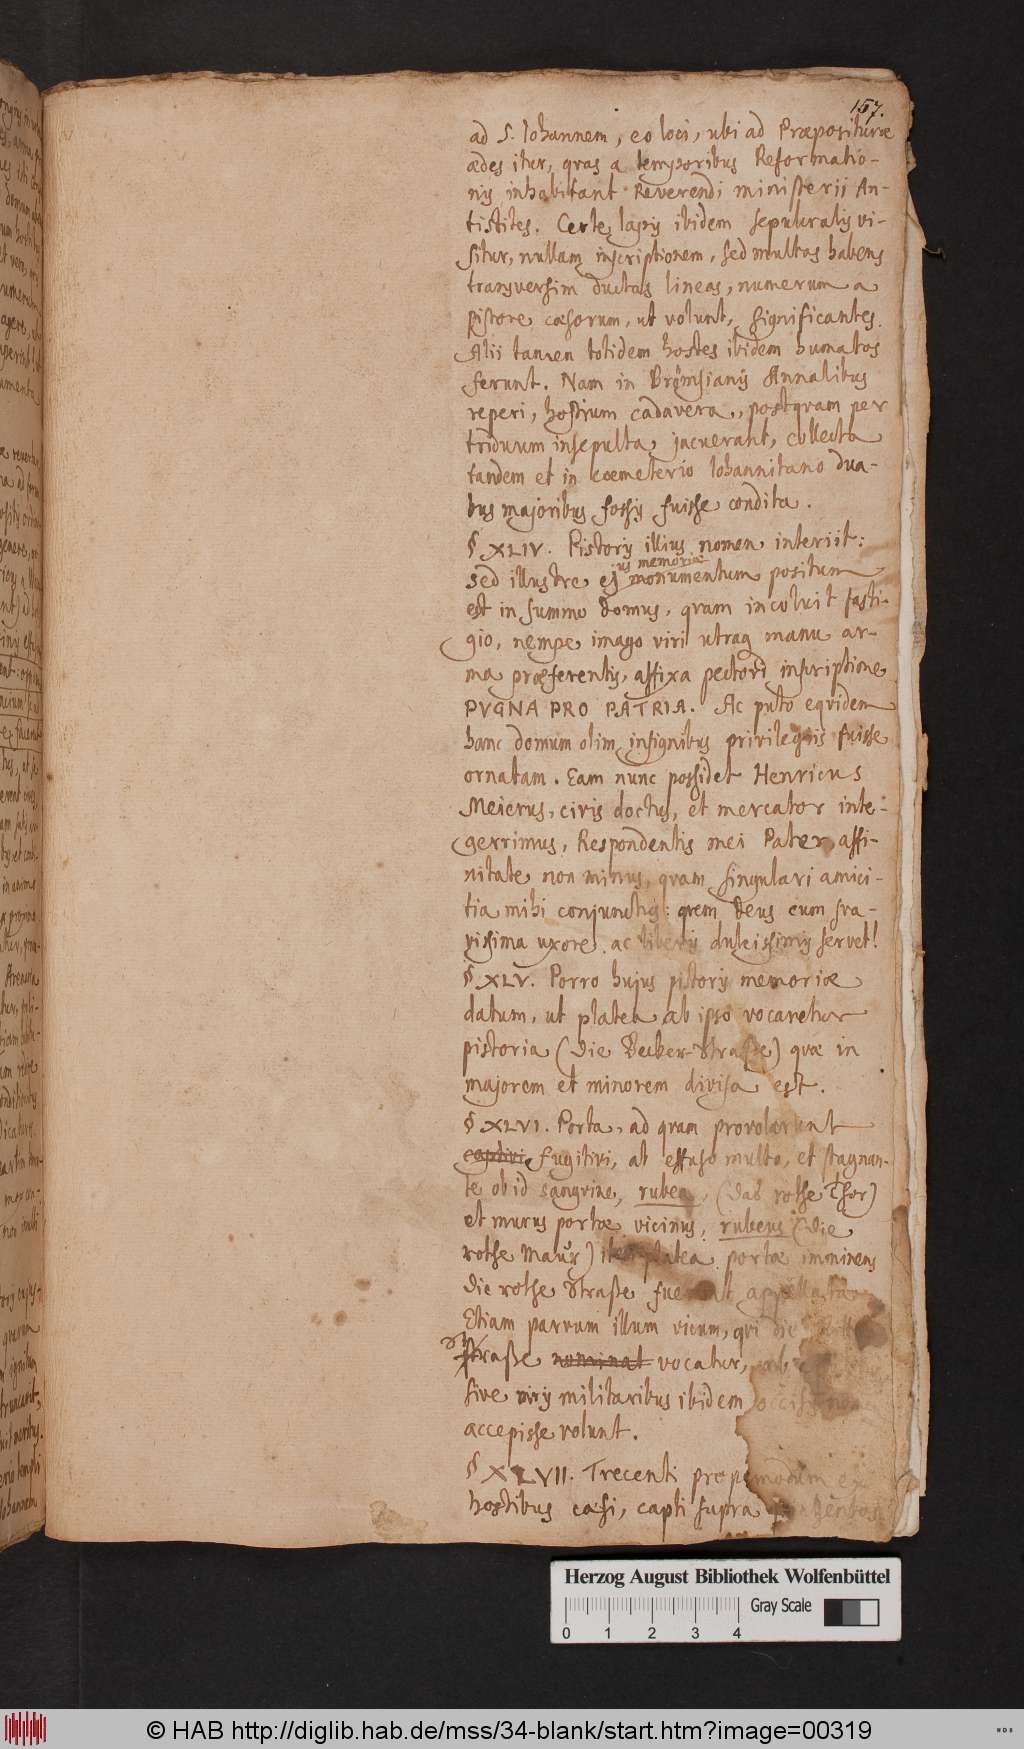 157.
ad S. Iohannem, eo loci, ubi ad Præposituræ
ædes itur, qvas a temporibus Reformatio-
nis inhabitant Reverendi ministerii An-
tistites. Certe lapis ibidem sepulcralis vi-
situr, nullam inscriptionem, sed multas habens
transversim ductas lineas, numerum a
pistore cæsorum, ut volunt, significantes.
Alii tamen totidem hostes ibidem humatos
ferunt. Nam in Brömsianis Annalibus
reperi, hostium cadavera, postqvam per
triduum insepulta jacuerant, collecta
tandem et in coemeterio Iohannitano dua-
bus majoribus fossis fuisse condita.
§ XLIV. Pistoris illius nomen interiit:
us memoriæ
sed illustre ej monumentum positum
est in summo domus, qvam incoluit fasti-
gio, nempe imago viri utraq manu ar-
ma præferentis, affixa pectori inscriptione
PVGNA PRO PATRIA. Ac puto eqvidem
hanc domum olim insignibus privilegiis fuisse
ornatam. Eam nunc possidet Henricus
Meierus, civis doctus, et mercator inte-
gerrimus, Respondentis mei Pater, affi-
nitate non minus, qvam singulari amici-
tia mihi conjunctus: qvem Deus cum sva-
vissima uxore ac liberis dulcissimis servet!
§ XLV. Porro hujus pistoris memoriæ
datum, ut platea ab ipso vocaretur
pistoria (die Becker-Straße) qvæ in
majorem et minorem divisa est.
§ XLVI. Porta, ad qvam provolarunt
captivi fugitivi, ab effuso multo, et stagnan-
te ob id sangvine, rubea, (das rothe Thor)
et murus portæ vicinus, rubeus (die
rothe Maur) item platea portæ imminens
die rothe Straße fuerunt appellata
Etiam parvum illum vicum, qvi die
Straße nominat vocatur, ab
sive viris militaribus ibidem occisis nomen
accepisse volunt.
§ XLVII. Trecenti propemodum ex
hostibus cæsi, capti supra
Herzog August Bibliothek Wolfenbüttel
Gray Scale
0 1 2 3 4
© HAB http://diglib.hab.de/mss/34-blank/start.htm?image=00319